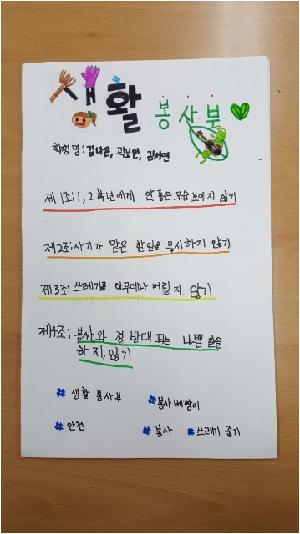 생활 봉사부
학생 명: 김나윤, 곽보연, 김서연
제1조: 1, 2학년에게 안 좋은 모습 보이지 않기
제2조: 자기가 맡은 할일을 무시하기 않기
제3조: 쓰레기를 아무데나 버릴지 않기
제4조: 봉사와 정 반대 되는 나쁜 일은
하지 않기
# 생활 봉사부 # 봉사 베짱이
# 안전 # 봉사 # 쓰레기 줍기